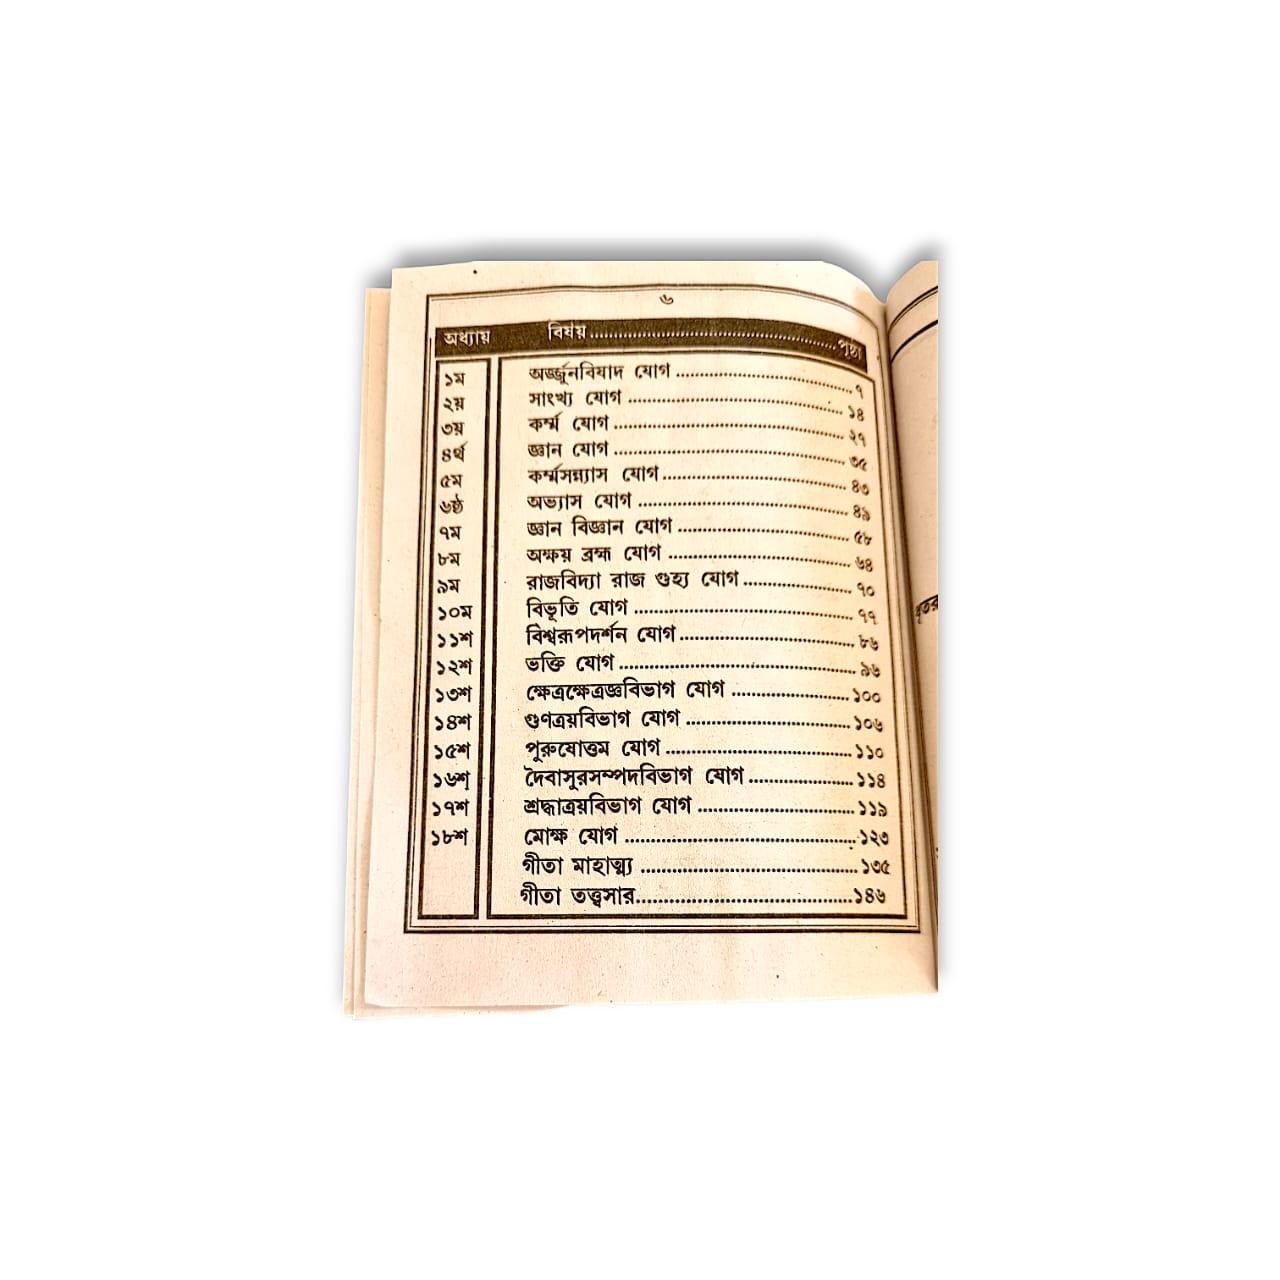 ৬
অধ্যায় বিষয়..................................................পৃষ্ঠা
১ম অর্জ্জুনবিষাদ যোগ ..................................... ৭
২য় সাংখ্য যোগ ............................................ ১৪
৩য় কর্ম্ম যোগ ............................................. ২৭
৪র্থ জ্ঞান যোগ ............................................. ৩৫
৫ম কর্ম্মসন্ন্যাস যোগ ...................................... ৪৩
৬ষ্ঠ অভ্যাস যোগ ........................................... ৪৯
৭ম জ্ঞান বিজ্ঞান যোগ .................................... ৫৮
৮ম অক্ষয় ব্রহ্ম যোগ ...................................... ৬৪
৯ম রাজবিদ্যা রাজ গুহ্য যোগ ........................ ৭০
১০ম বিভূতি যোগ ............................................ ৭৭
১১শ বিশ্বরূপদর্শন যোগ ................................... ৮৬
১২শ ভক্তি যোগ ............................................. ৯৬
১৩শ ক্ষেত্রক্ষেত্রজ্ঞবিভাগ যোগ ........................ ১০০
১৪শ গুণত্রয়বিভাগ যোগ ................................. ১০৬
১৫শ পুরুষোত্তম যোগ ..................................... ১১০
১৬শ্ দৈবাসুরসম্পদবিভাগ যোগ ..................... ১১৪
১৭শ শ্রদ্ধাত্রয়বিভাগ যোগ ............................... ১১৯
১৮শ মোক্ষ যোগ ............................................ ১২৩
গীতা মাহাত্ম্য .......................................... ১৩৫
গীতা তত্ত্বসার.......................................... ১৪৬